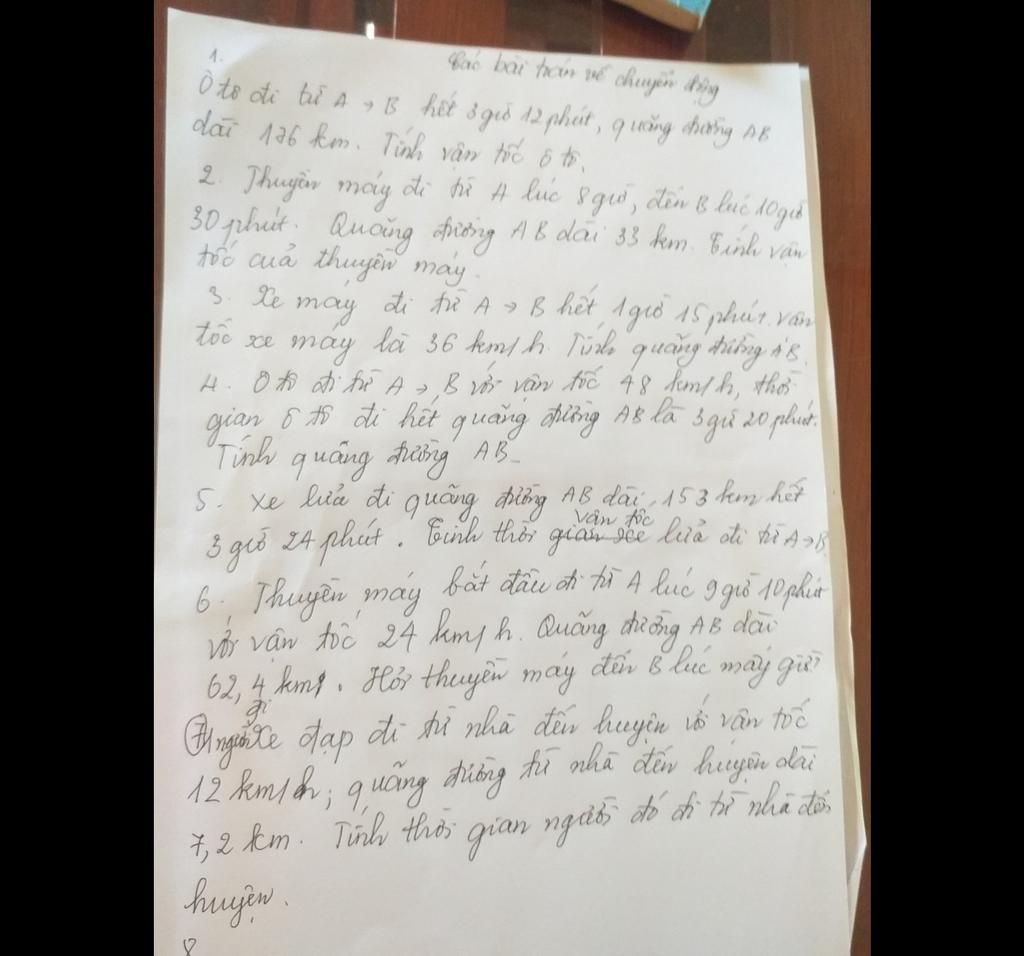 Các bài toán về chuyển động
1.
Ô tô đi từ A → B hết 3 giờ 12 phút, quãng đường AB
dài 136 km. Tính vận tốc ô tô.
2. Thuyền máy đi từ A lúc 8 giờ, đến B lúc 10 giờ
30 phút. Quãng đường AB dài 33 km. Tính vận
tốc của thuyền máy.
3. Xe máy đi từ A → B hết 1 giờ 15 phút. vận
tốc xe máy là 36 km/h. Tính quãng đường AB.
4. Ô tô đi từ A → B với vận tốc 48 km/h, thời
gian ô tô đi hết quãng đường AB là 3 giờ 20 phút.
Tính quãng đường AB_
5. Xe lửa đi quãng đường AB dài 153 km hết
vận tốc
3 giờ 24 phút. Tính thời gian xe lửa đi từ A → B
6. Thuyền máy bắt đầu đi từ A lúc 9 giờ 10 phút
với vận tốc 24 km/h. Quãng đường AB dài
62,4 km. Hỏi thuyền máy đến B lúc mấy giờ
đi
7 1 người xe đạp đi từ nhà đến huyện với vận tốc
12 km/h; quãng đường từ nhà đến huyện dài
7,2 km. Tính thời gian người đó đi từ nhà đến
huyện.
8